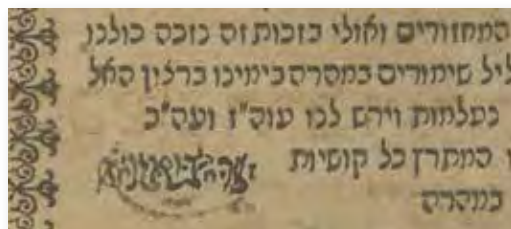 המחזורים ואולי בזכות זה נזכה כולנו
ליל שימורים במהרה בימינו ברצון האל
נעלמות וירש לנו עוה"ז ועה"ב
המתרץ כל קושיות
במהרה